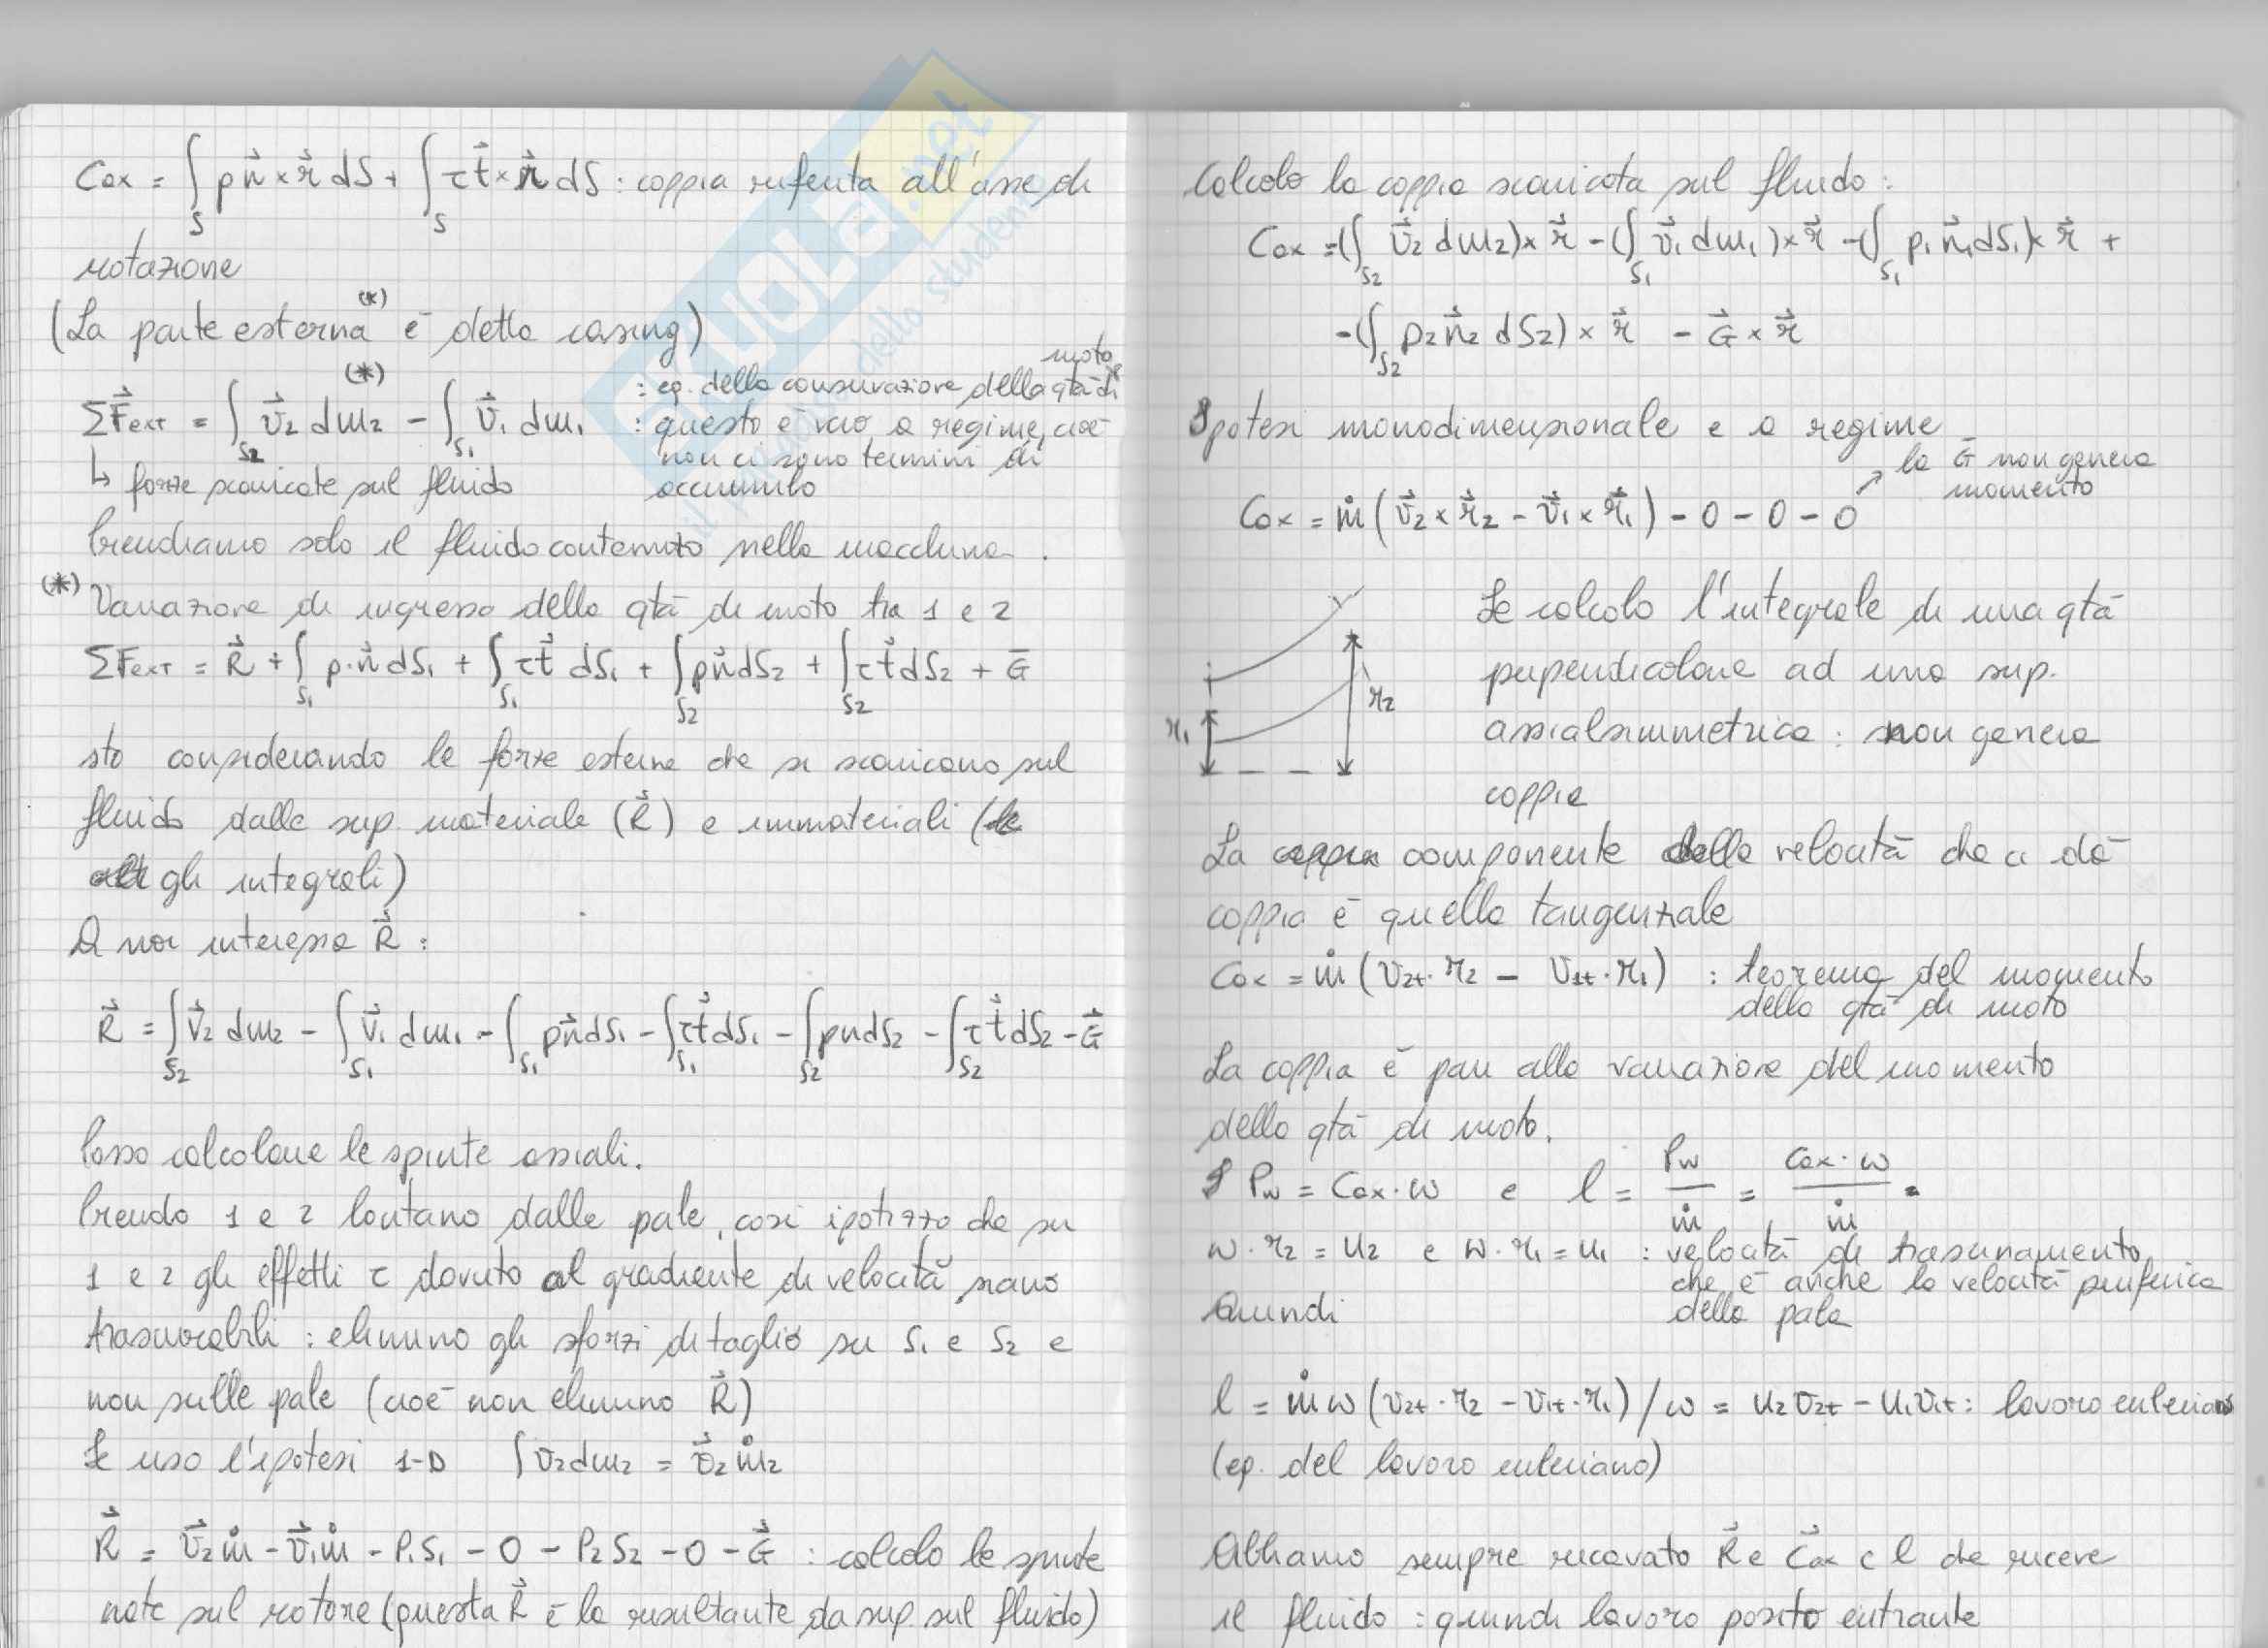 Cax = ∫_S p n⃗ × r⃗ dS + ∫_S τ t⃗ × r⃗ dS : coppia riferita all'asse di
rotazione
(La parte esterna (*) è detta casing)
ΣF⃗ext = ∫_S2 v⃗2 dm2 - ∫_S1 v⃗1 dm1 (*) : eq. della conservazione della qtà di moto
: questo è vero a regime, cioè
non ci sono termini di
↳ forze scaricate sul fluido accumulo
Prendiamo solo il fluido contenuto nella macchina.
(*) Variazione di ingresso della qtà di moto tra 1 e 2
ΣFext = R⃗ + ∫_S1 p·n⃗ dS1 + ∫_S1 τ t⃗ dS1 + ∫_S2 p n⃗ dS2 + ∫_S2 τ t⃗ dS2 + G̅
sto considerando le forze esterne che si scaricano sul
fluido dalle sup. materiale (R⃗) e immateriali (
gli integrali)
A noi interessa R⃗ :
R⃗ = ∫_S2 v⃗2 dm2 - ∫_S1 v⃗1 dm1 - ∫_S1 p n⃗ dS1 - ∫_S1 τ t⃗ dS1 - ∫_S2 p n dS2 - ∫_S2 τ t⃗ dS2 - G⃗
Posso calcolare le spinte assiali.
Prendo 1 e 2 lontano dalle pale, così ipotizzo che su
1 e 2 gli effetti τ dovuto al gradiente di velocità siano
trascurabili : elimino gli sforzi di taglio su S1 e S2 e
non sulle pale (cioè non elimino R⃗)
Se uso l'ipotesi 1-D ∫ v2 dm2 = v⃗2 ṁ2
R⃗ = v⃗2 ṁ - v⃗1 ṁ - P1 S1 - 0 - P2 S2 - 0 - G⃗ : calcolo le spinte
nate sul rotore (questa R⃗ è la risultante da sup. sul fluido)
Calcolo la coppia scaricata sul fluido :
Cax = (∫_S2 v⃗2 dm2) × r⃗ - (∫_S1 v⃗1 dm1) × r⃗ - (∫_S1 p1 n⃗1 dS1) × r⃗ +
- (∫_S2 p2 n⃗2 dS2) × r⃗ - G⃗ × r⃗
Ipotesi monodimensionale e a regime
la G̅ non genera
momento
Cax = ṁ (v⃗2 × r⃗2 - v⃗1 × r⃗1) - 0 - 0 - 0
r1
r2
Se calcolo l'integrale di una qtà
perpendicolare ad una sup.
assialsimmetrica : non genera
coppia
La componente della velocità che ci dà
coppia è quella tangenziale
Cax = ṁ (v2t · r2 - v1t · r1) : teorema del momento
della qtà di moto
La coppia è pari alla variazione del momento
della qtà di moto.
Pw = Cax · ω e l = Pw/ṁ = Cax · ω/ṁ =
ω · r2 = u2 e ω · r1 = u1 : velocità di trascinamento
che è anche la velocità periferica
Quindi della pala
l = ṁ ω (v2t · r2 - v1t · r1) / ω = u2 v2t - u1 v1t : lavoro euleriano
(eq. del lavoro euleriano)
Abbiamo sempre ricavato R⃗ e C⃗ax e l che riceve
il fluido : quindi lavoro posito entrante
SKUOLA.net
il portale dello studente